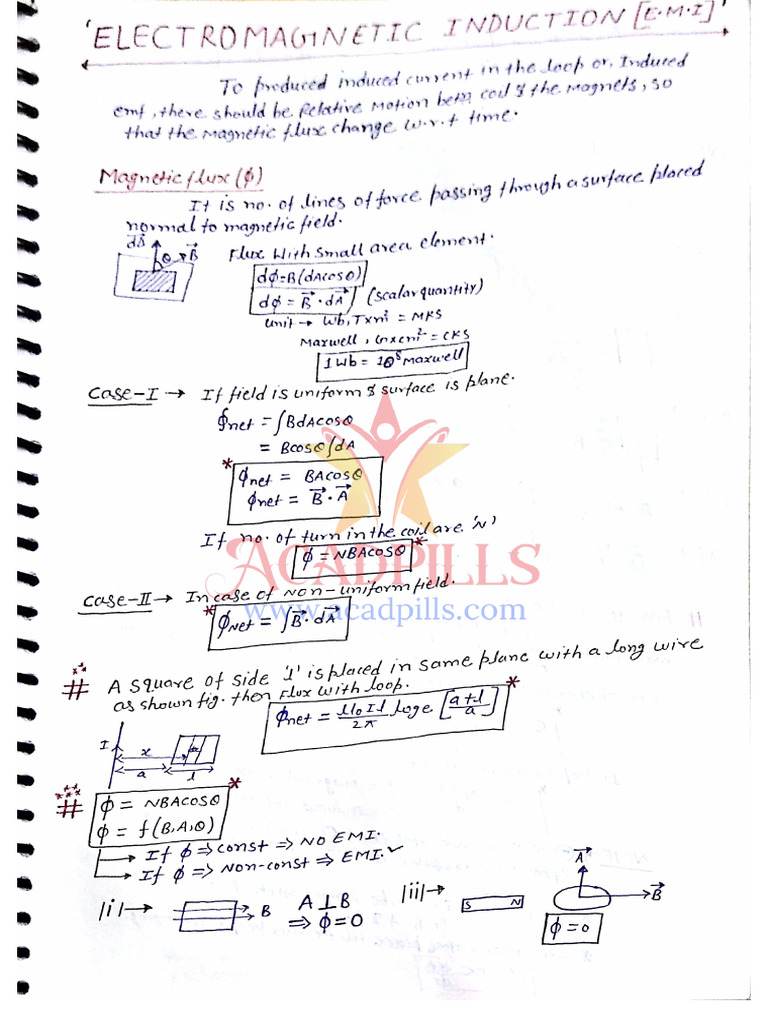 'ELECTROMAGNETIC INDUCTION [E.M.I]'
To produced induced current in the loop or, Induced
emf, there should be Relative Motion betn coil & the Magnets, so
that the Magnetic flux change w.r.t time.
Magnetic flux (ϕ)
It is no. of lines of force passing through a surface placed
normal to magnetic field.
dA
θ
B
Flux with small area element.
dϕ = B(dAcosθ)
dϕ = B⃗ · dA⃗ (scalar quantity)
Unit → Wb, T×m² = MKS
Maxwell, G×cm² = CKS
1 Wb = 10⁸ Maxwell
Case-I → If field is uniform & surface is plane.
ϕnet = ∫BdAcosθ
= Bcosθ∫dA
* ϕnet = BAcosθ
ϕnet = B⃗ · A⃗
If no. of turn in the coil are 'N'
ϕ = NBAcosθ *
ACADPILLS
Case-II → In case of non-uniform field.
www.acadpills.com
* ϕNet = ∫B⃗ · dA⃗
# A square of side 'l' is placed in same plane with a long wire
as shown fig. then Flux with loop.
ϕnet = μ₀Il/2π loge [a+l/a] *
I
x
dx
a
l
# ϕ = NBACOSθ *
ϕ = f(B,A,θ)
→ If ϕ ⇒ const ⇒ NO EMI.
→ If ϕ ⇒ Non-const ⇒ EMI. ✓
|i|→ B A⊥B
⇒ ϕ=0
|ii|→ S N
A⃗
B⃗
ϕ=0